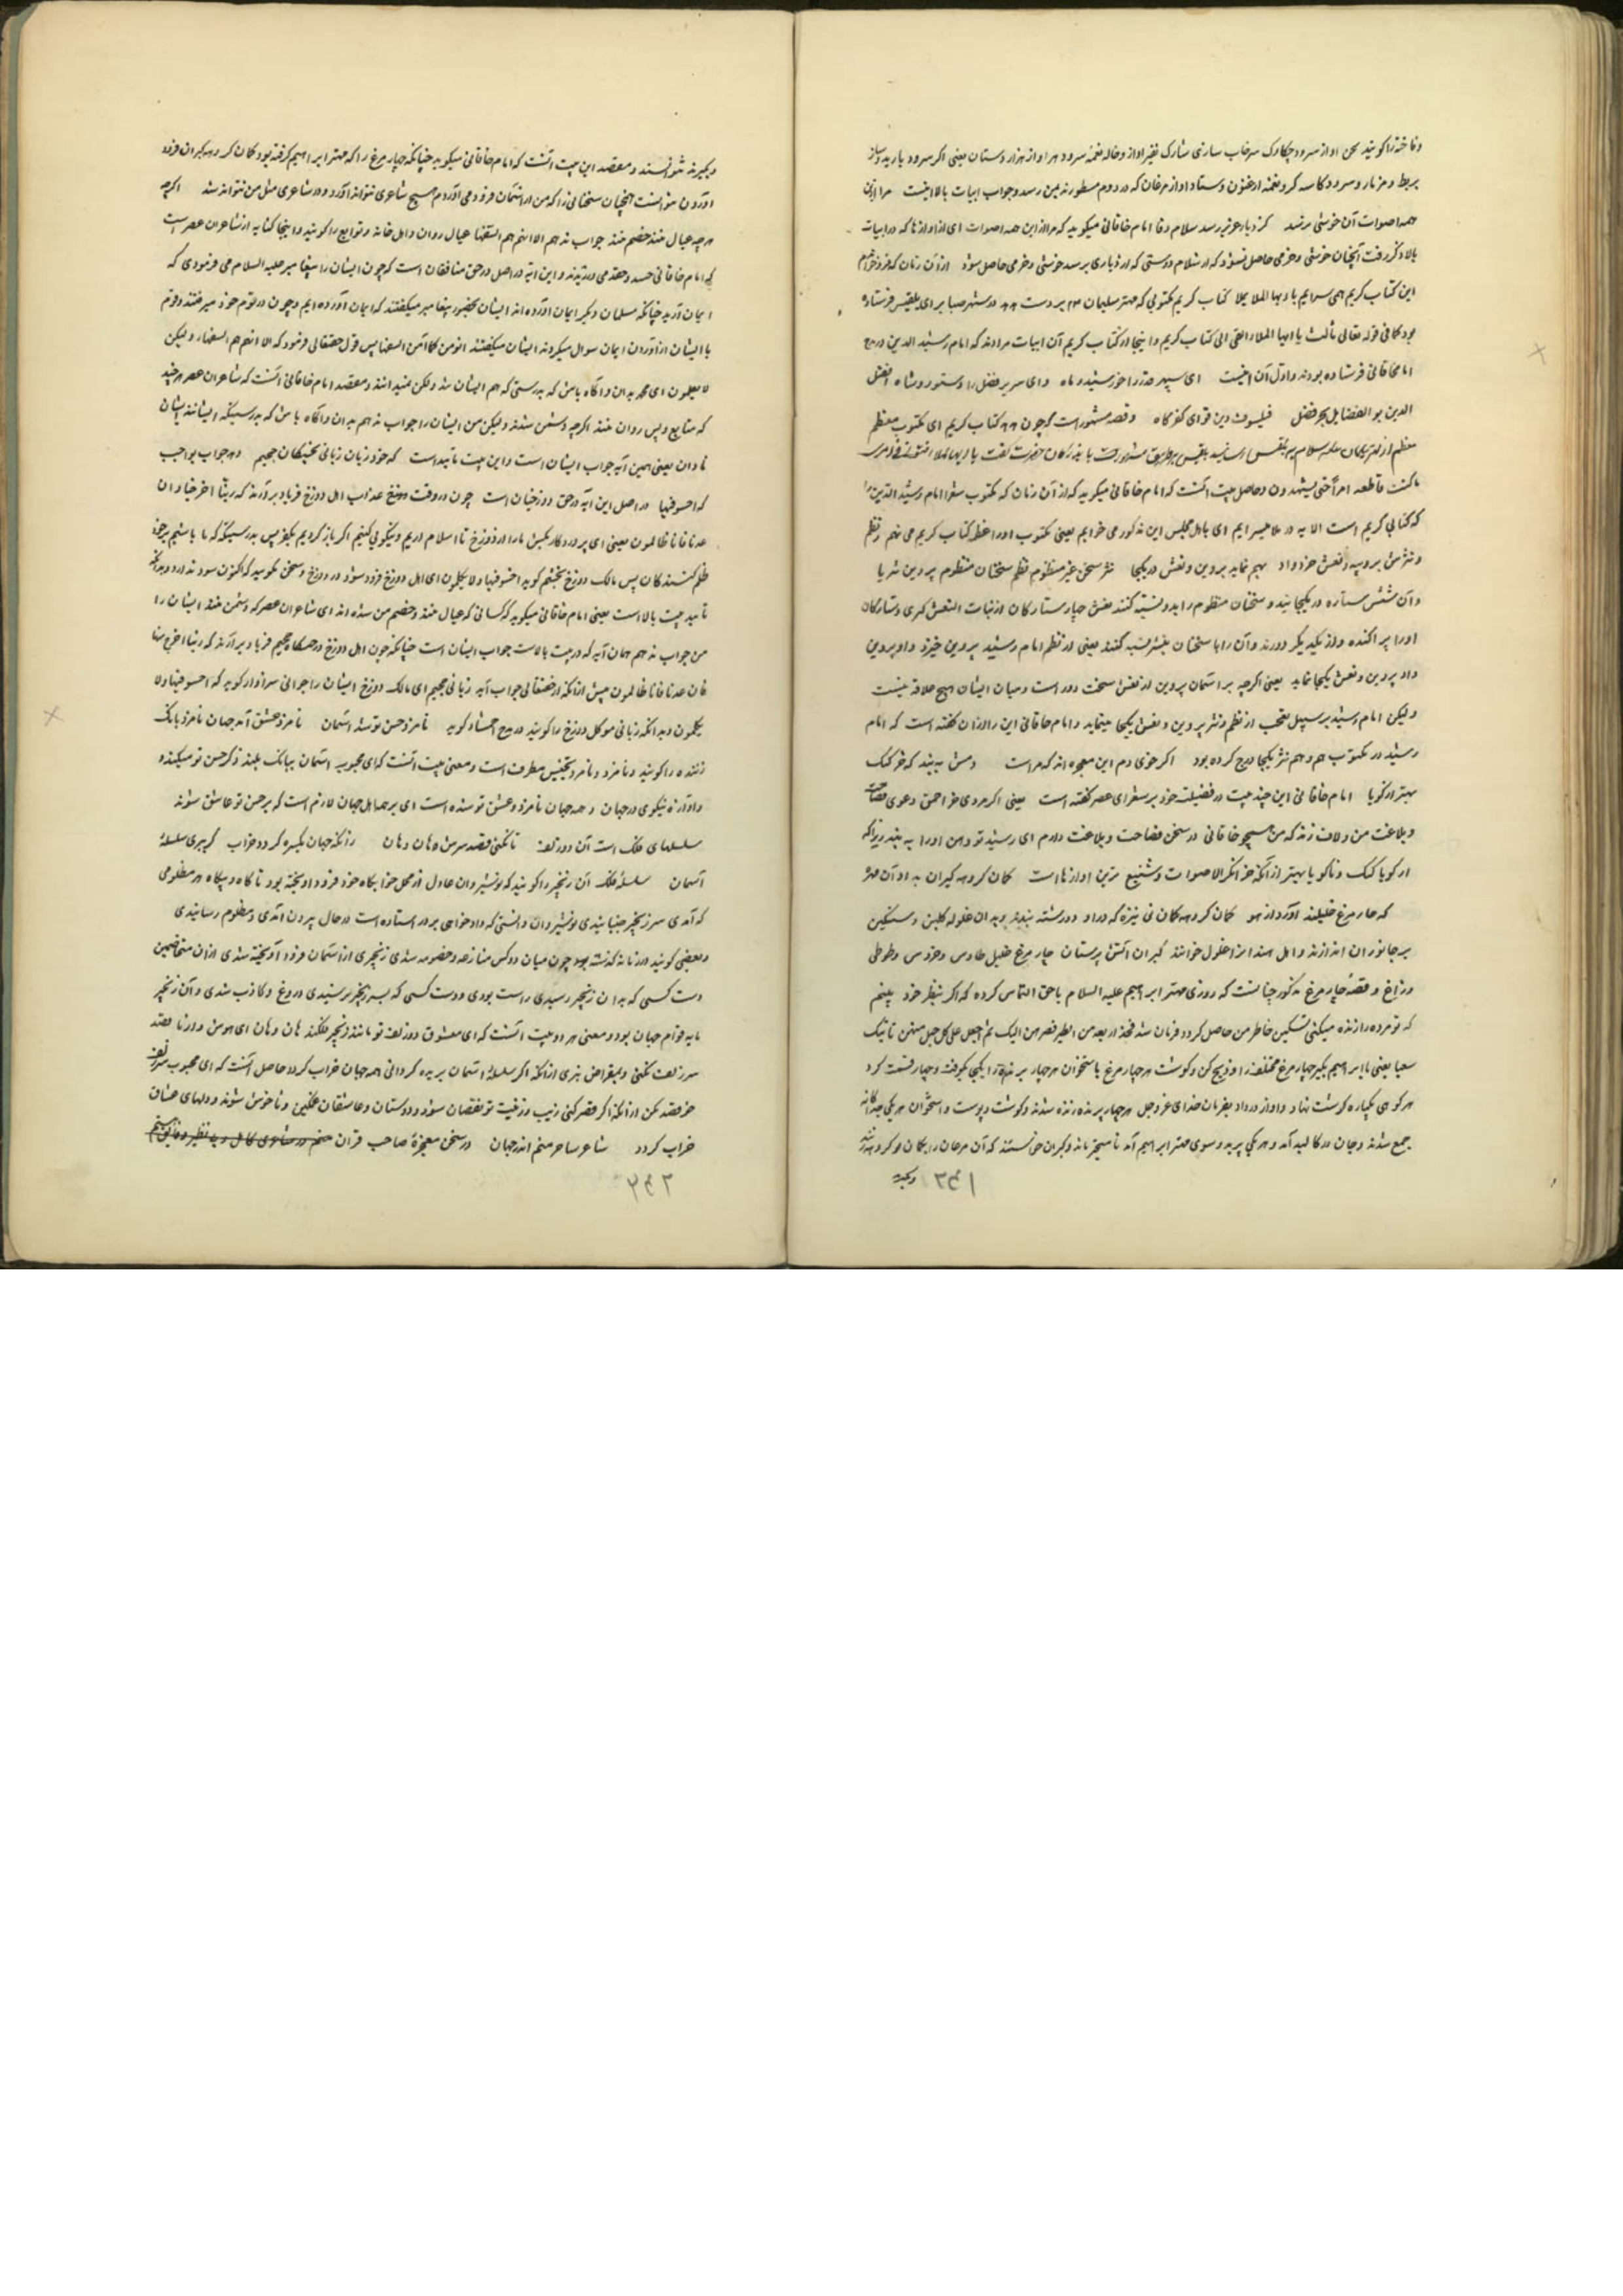 و فاخته را گویند لحن آواز سرود چکاوک سرخاب ساری شارک نفیر آواز و خاله نغمه سرود هر آواز هزار دستان یعنی اگر سرود باربد و ساز
بربط و مزمار و سرود کاسه گر و نغمه ارغنون و ستا و آواز مرغان که در دوم مسطور بمن رسد و جواب ابیات بالا اینست مرا ازین
همه اصوات آن خوشی نرسد کز دیار عزیز رسد سلام وفا امام خاقانی میگوید که مرا از این همه اصوات ای از آوازها که در ابیات
بالا ذکر رفت آنچنان خوشی و خرمی حاصل نشود که از سلام دوستی که از دیاری برسد خوشی و خرمی حاصل شود از آن زمان که فرو خواندم
این کتاب کریم همی سرایم یا ایها الملا بملا کتاب کریم مکتوبی که مهتر سلیمان بر دست هدهد در شهر صبا برای بلقیس فرستاده
بود کما فی قوله تعالی قالت یا ایها الملا القی الی کتاب کریم و اینجا از کتاب کریم آن ابیات مرادند که امام رشید الدین در مدح
امام خاقانی فرستاده بودند و اول آن اینست ای سپهر قدر را خورشید و ماه وای سریر فضل را دستور و شاه افضل
الدین بو الفضایل بحر فضل فیلسوف دین فزای کفر کاه و قصه مشهور است که چون هدهد کتاب کریم ای مکتوب معظم
ما کنت قاطعه امرا حتی تشهدون و حاصل بیت آنست که امام خاقانی میگوید که از آن زمان که مکتوب امام رشید الدین را
که کتابی کریم است الا یه در ملا میسرایم ای باهل مجلس این مذکور می خوانم یعنی مکتوب او را
و نثرش پروین و نعش خرد داد بهم نماید پروین و نعش در یکجا نثر سخن غیر منظوم نظم سخنان منظوم پروین ثریا
و آن شش ستاره در یکجا نعش چهار ستارگان از بنات النعش کبری و ستارگان
اورا پراکنده و از یکدیگر دورند و آن را با سخنان نثر نسبت کنند یعنی از نظم امام رشید پروین خیزد و او پروین
داد پروین و نعش یکجا نماید یعنی اگرچه بر آسمان پروین از نعش سخت دور است و میان ایشان هیچ علاقه نیست
ولیکن امام رشید بر سبیل تعجب از نظم و نثر پروین و نعش یکجا مینماید و امام خاقانی این را از آن گفته است که امام
رشید در مکتوب هم نظم و هم نثر یکجا درج کرده بود اگر خوی دم این معجزه اند که مراست دمش ببند که خر گنگ
بهتر از گویا امام خاقانی این چند بیت در فضیلت خود بر شعرای عصر گفته است یعنی اگر مردی خر احمق دعوی فصاحت
و بلاغت من و لاف زند که من همچو خاقانی در سخن فصاحت و بلاغت دارم ای رشید تو دهن او را به بند زیرا که
ار گویا گنگ و ناگویا بهتر از آنکه خر انکر الاصوات و شنیع ترین آوازها است کمان گروهه گبران ندارد آن مهره
که چار مرغ خلیل آورد از هوا کمان گروهه کمان نی نیزه که در او دو رشته بندند و بدان غلوله گلین و سنگین
بر جانوران اندازند و اهل هند انرا غلول خوانند گبران آتش پرستان چار مرغ خلیل طاوس و خروس و طوطی
و زاغ و قصه چار مرغ مذکور چنانست که روزی مهتر ابراهیم علیه السلام با حق التماس کرده که اگر بنظر خود بینم
که تو مرده را زنده میکنی تسکین خاطر من حاصل گردد فرمان شد فخذ اربعه من الطیر فصرهن الیک ثم اجعل علی کل جبل منهن یاتینک
سعیا یعنی یا ابراهیم بگیر چهار مرغ مختلف را و ذبح کن و گوشت هر چهار مرغ با استخوان هر چهار پرنده را یکجا بکوفت و چهار قسمت کرد
هر کوهی یکپاره گوشت نهاد و آواز در داد بفرمان خدای عز و جل هر چهار پرنده زنده شدند و گوشت و پوست و استخوان هر یکی جداگانه
جمع شدند و جان در کالبد آمد و هر یکی پرید و سوی مهتر ابراهیم آمدند و گبران خواستند که آن مرغان را بکمان گروهه
۱۳۴۱
دیگر نتوانستند و مقصد این بیت آنست که امام خاقانی میگوید چنانکه چهار مرغ را که مهتر ابراهیم گرفته بود کمان گروهه گبران فرود
آوردن نتوانست همچنان سخنانی را که من از آسمان فرود می آوردم هیچ شاعری نتواند آورد و در شاعری مثل من نتوانند شد اگرچه
هر چه عیال منند خصم منند جواب ندهم الا انهم هم السفها عیال روان و اهل خانه و توابع را گویند و اینجا کنایه از شاعران عصر است
که امام خاقانی حسد و حقد می ورزیدند و این آیه در اصل در حق منافقان است که چون ایشان را پیغامبر علیه السلام می فرمودی که
ایمان آرید چنانکه مسلمان دیگر ایمان آورده اند ایشان بحضور پیغامبر میگفتند که ایمان آورده ایم و چون در قوم خود میرفتند و قوم
با ایشان از آوردن ایمان سوال میکردند ایشان میگفتند انومن کما آمن السفها پس قول حقتعالی فرمود که الا انهم هم السفهاء و لیکن
لا یعلمون ای محمد بدان و آگاه باش که بدرستی که هم ایشان سفیه ولیکن نمیدانند و مقصد امام خاقانی آنست که شاعران عصر هر چند
که متابع و پس روان منند اگرچه دشمن شدند ولیکن من ایشان را جواب ندهم بدان و آگاه باش که بدرستیکه ایشانند ایشان
نادان یعنی همین آیه جواب ایشان است و این بیت تایید است که خود زبان زبانی بحبسگاه جحیم دهد جواب بواجب
که اخسوا فیها در اصل این آیه در حق دوزخیان است چون در وقت دوزخ عذاب اهل دوزخ فریاد برآرند که ربنا اخرجنا و ان
عدنا فانا ظالمون یعنی ای پروردگار بکش مارا از دوزخ تا اسلام آریم و نیکویی کنیم اگر باز گردیم بکفر پس بدرستیکه ما باشیم بر خود
ظلم کنندگان پس مالک دوزخ بخشم گوید اخسوا فیها ولا تکلمون ای اهل دوزخ فرود شوید در دوزخ و سخن مگویید که اکنون سود ندارد و بدانکه
تایید بیت بالا است یعنی امام خاقانی میگوید که کسانی که عیال منند و خصم من شده اند ای شاعران عصر که دشمن منند ایشان را
من جواب ندهم همان آیه که در بیت بالاست جواب ایشان است چنانکه چون اهل دوزخ در حبسگاه جحیم فریاد برآرند که ربنا اخرجنا
فان عدنا فانا ظالمون پیش از آنکه از حقتعالی جواب آید زبانی جحیم ای مالک دوزخ ایشان را جوابی سزاوار گوید که اخسوا فیها ولا
تکلمون و بدانکه زبانی موکل دوزخ را گویند در مدح گوید نامزد حسن تو شد آسمان نامزد عشق آمد جهان نامزد بانگ
زننده را گویند و نامزد و نامزد تجنیس مطرف است و معنی بیت آنست که ای محبوبه آسمان ببانگ بلند ذکر حسن تو میکند و
و آوازه نیکوی در جهان و همه جهان نامزد عشق تو شده است ای بر همه اهل جهان لازم است که بر حسن تو عاشق شوند
سلسلهای فلک است آن دو زلف تا نکنی قصد سرش هان و هان زانکه جهان یکسره گردد خراب گر ببری سلسله
آسمان سلسله فلک آن زنجیر را گویند که نوشیروان عادل از محل خوابگاه خود فرود آویخته بود تا گاه و بیگاه هر مظلومی
که آمدی سر زنجیر جنبانیدی نوشیروان دانستی که دادخواهی بر در استاده است در حال بیرون آمدی و مظلوم رسانیدی
و بعضی گویند در زمانه گذشته چون میان دو کس منازعه و خصومه شدی زنجیری از آسمان فرود آویخته شدی از آن متخاصمین
دست کسی که بدان زنجیر رسیدی راست بودی و دست کسی که بسر زنجیر نرسیدی دروغ و کاذب شدی و آن زنجیر
مایه قوام جهان بود و معنی هر دو بیت آنست که ای معشوق دو زلف تو مانند زنجیر فلکند هان و هان ای هوش دار تا قصد
سر زلف نکنی و بمقراض نبری از آنکه اگر سلسله آسمان بریده گردانی همه جهان خراب گردد حاصل آنست که ای محبوب سر زلف
خود قصد مکن از آنکه اگر قصر کنی زیب و زینت تو نقصان شود و دوستان و عاشقان غمگین و ناخوش شوند و دلهای عشاق
خراب گردد شاعر ساحر منم اندر جهان در سخن معجزه صاحب قران
۳۴۲